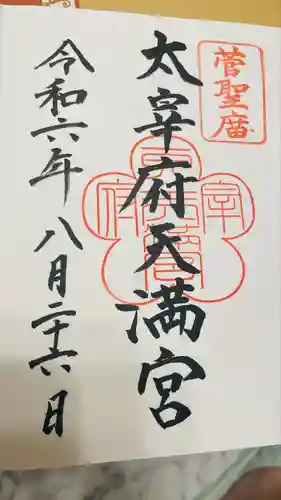 菅聖庿
太宰府天満宮
令和六年八月二十六日